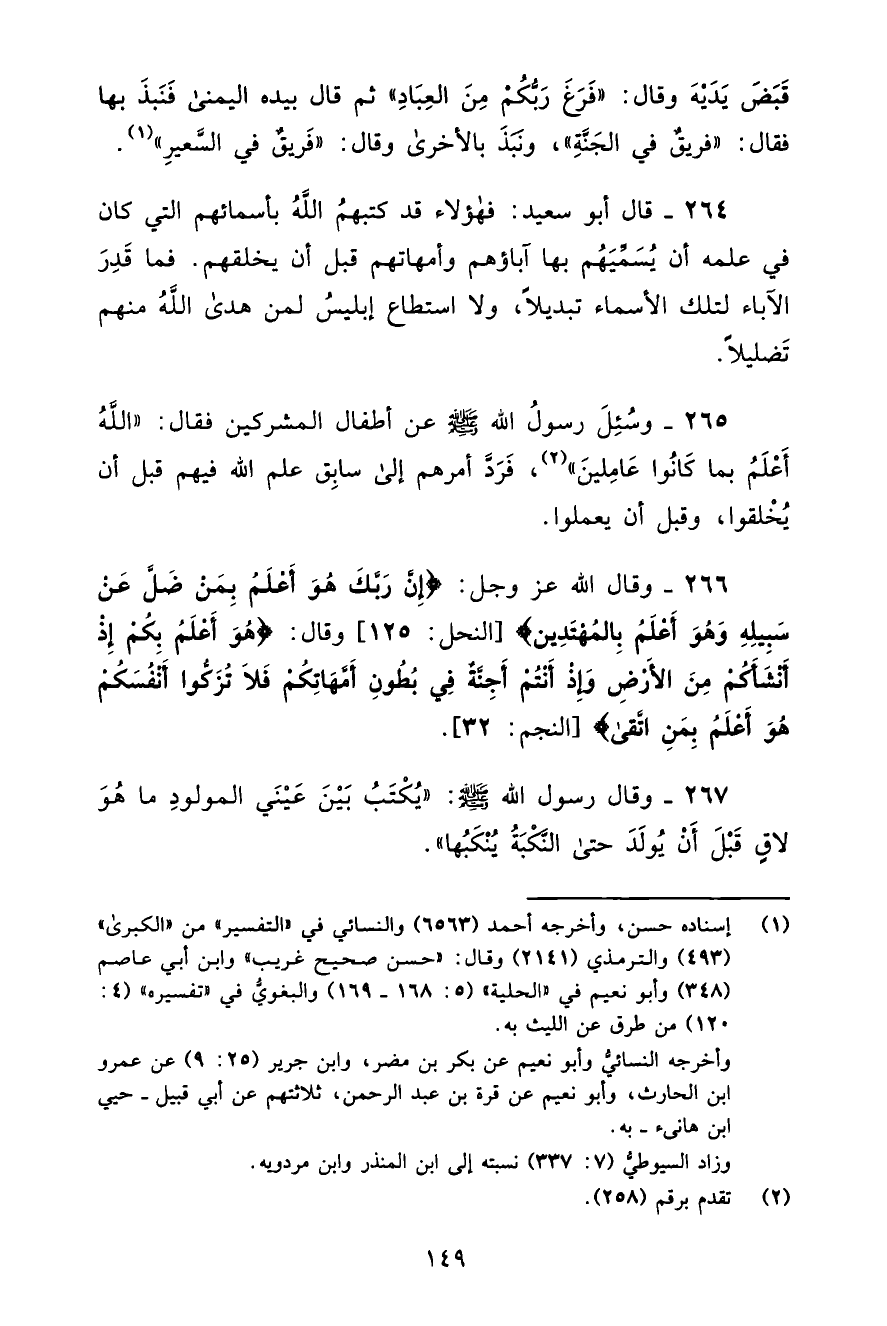 قَبَضَ يَدَيْهَ وقال: «فَرَغَ رَبُّكُمْ مِنَ العِبَادِ» ثم قال بيده اليمنىٰ فَنَبذَ بها
فقال: «فريقٌ في الجَنَّةِ»، ونَبَذَ بالأخرىٰ وقال: «فَريقٌ في السَّعيرِ»(١).
٢٦٤ ـ قال أبو سعيد: فهٰؤلاء قد كتبهمُ اللَّهُ بأسمائهم التي كان
في علمه أن يُسَمِّيَهُم بها آباؤهم وأمهاتهم قبل أن يخلقهم. فما قَدِرَ
الآباء لتلك الأسماء تبديلاً، ولا استطاع إبليسُ لمن هدىٰ اللَّهُ منهم
تَضليلاً.
٢٦٥ ـ وسُئِلَ رسولُ الله ﷺ عن أطفال المشركين فقال: «اللَّهُ
أَعْلَمُ بما كَانُوا عَامِلينَ»(٢)، فَرَدَّ أمرهم إلىٰ سابِق علم الله فيهم قبل أن
يُخْلقوا، وقبل أن يعملوا.
٢٦٦ ـ وقال الله عز وجل: ﴿إِنَّ رَبَّكَ هُوَ أَعْلَمُ بِمَنْ ضَلَّ عَنْ
سَبِيلِهِ وَهُوَ أَعْلَمُ بِالمُهْتَدِين﴾ [النحل: ١٢٥] وقال: ﴿هُوَ أَعْلَمُ بِكُمْ إِذْ
أَنْشَأَكُمْ مِنَ الأَرْضِ وَإِذْ أَنْتُمْ أَجِنَّةٌ فِي بُطُونِ أُمَّهَاتِكُمْ فَلاَ تُزَكُّوا أَنْفُسَكُمْ
هُوَ أَعْلَمُ بِمَنِ اتَّقىٰ﴾ [النجم: ٣٢].
٢٦٧ ـ وقال رسول الله ﷺ: «يُكْتَبُ بَيْنَ عَيْنَي المولودِ ما هُوَ
لاقٍ قَبْلَ أَنْ يُولَدَ حتىٰ النَّكْبَةُ يُنْكَبُها».
(١) إسناده حسن، وأخرجه أحمد (٦٥٦٣) والنسائي في «التفسير» من «الكبرىٰ»
(٤٩٣) والترمذي (٢١٤١) وقال: «حسن صحيح غريب» وابن أبي عاصم
(٣٤٨) وأبو نعيم في «الحلية» (٥: ١٦٨ ـ ١٦٩) والبغويُّ في «تفسيره» (٤:
١٢٠) من طرق عن الليث به.
وأخرجه النسائيُّ وأبو نعيم عن بكر بن مضر، وابن جرير (٢٥: ٩) عن عمرو
ابن الحارث، وأبو نعيم عن قرة بن عبد الرحمن، ثلاثتهم عن أبي قبيل ـ حيي
ابن هانىء ـ به.
وزاد السيوطيُّ (٧: ٣٣٧) نسبته إلى ابن المنذر وابن مردويه.
(٢) تقدم برقم (٢٥٨).
١٤٩